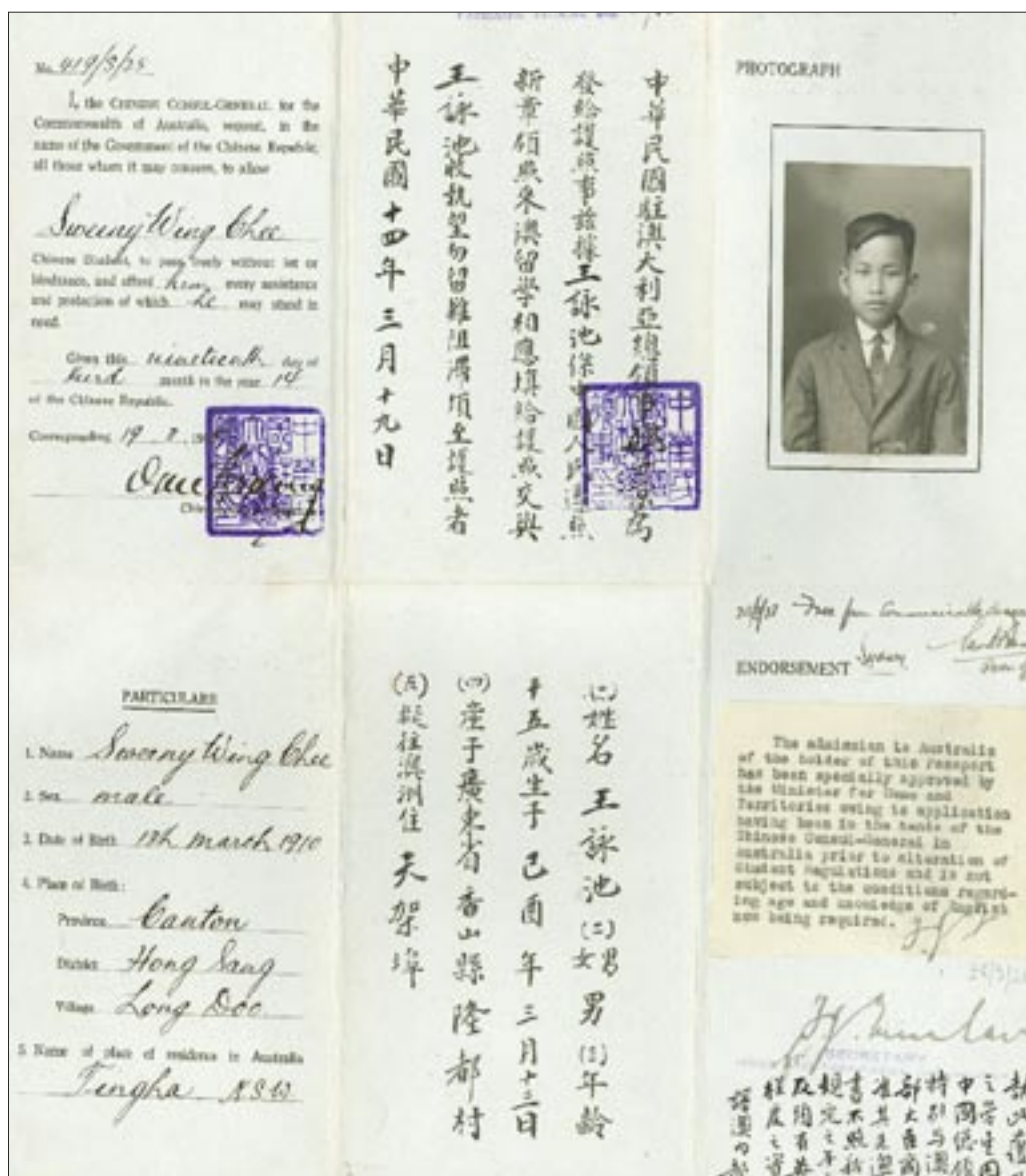 No. 419/S/25
I, the CHINESE CONSUL-GENERAL for the
Commonwealth of Australia, request, in the
name of the Government of the Chinese Republic,
all those whom it may concern, to allow
Sweeny Wing Chee
Chinese Student, to pass freely without let or
hindrance, and afford him every assistance
and protection of which he may stand in
need.
Given this nineteenth day of
third month in the year 14
of the Chinese Republic.
Corresponding 19
中華民國駐澳大利亞總領事
發給護照事茲據王詠池係中國人民遵照
新章領照來澳留學相應填給護照交與
王詠池收執望勿留難阻滯須至護照者
中華民國十四年三月十九日
PHOTOGRAPH
PARTICULARS
1. Name Sweeny Wing Chee
2. Sex male
3. Date of Birth 13th March 1910
4. Place of Birth:
Province Canton
District Hong Sang
Village Long Doo
5. Name of place of residence in Australia
Tingha N.S.W
(一)姓名 王詠池 (二)男女 男 (三)年齡
十五歲生于己酉年三月十三日
(四)產于廣東省香山縣隆都村
(五)擬往澳洲住天架埠
Free from
ENDORSEMENT Sydney
The admission to Australia
of the holder of this Passport
has been specially approved by
the Minister for Home and
Territories owing to application
having been in the hands of the
Chinese Consul-General in
Australia prior to alteration of
Student Regulations and is not
subject to the conditions regard-
ing age and knowledge of English
now being required.
SECRETARY